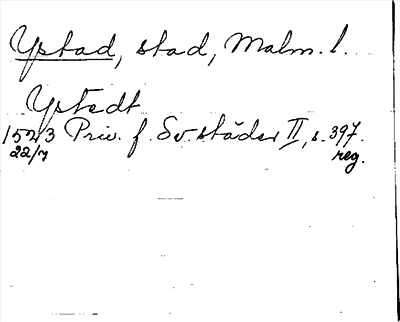 Ystad, stad, Malm. l.
Ystedt
1523 Priv. f. Sv. städer II, s. 397.
22/7 reg.